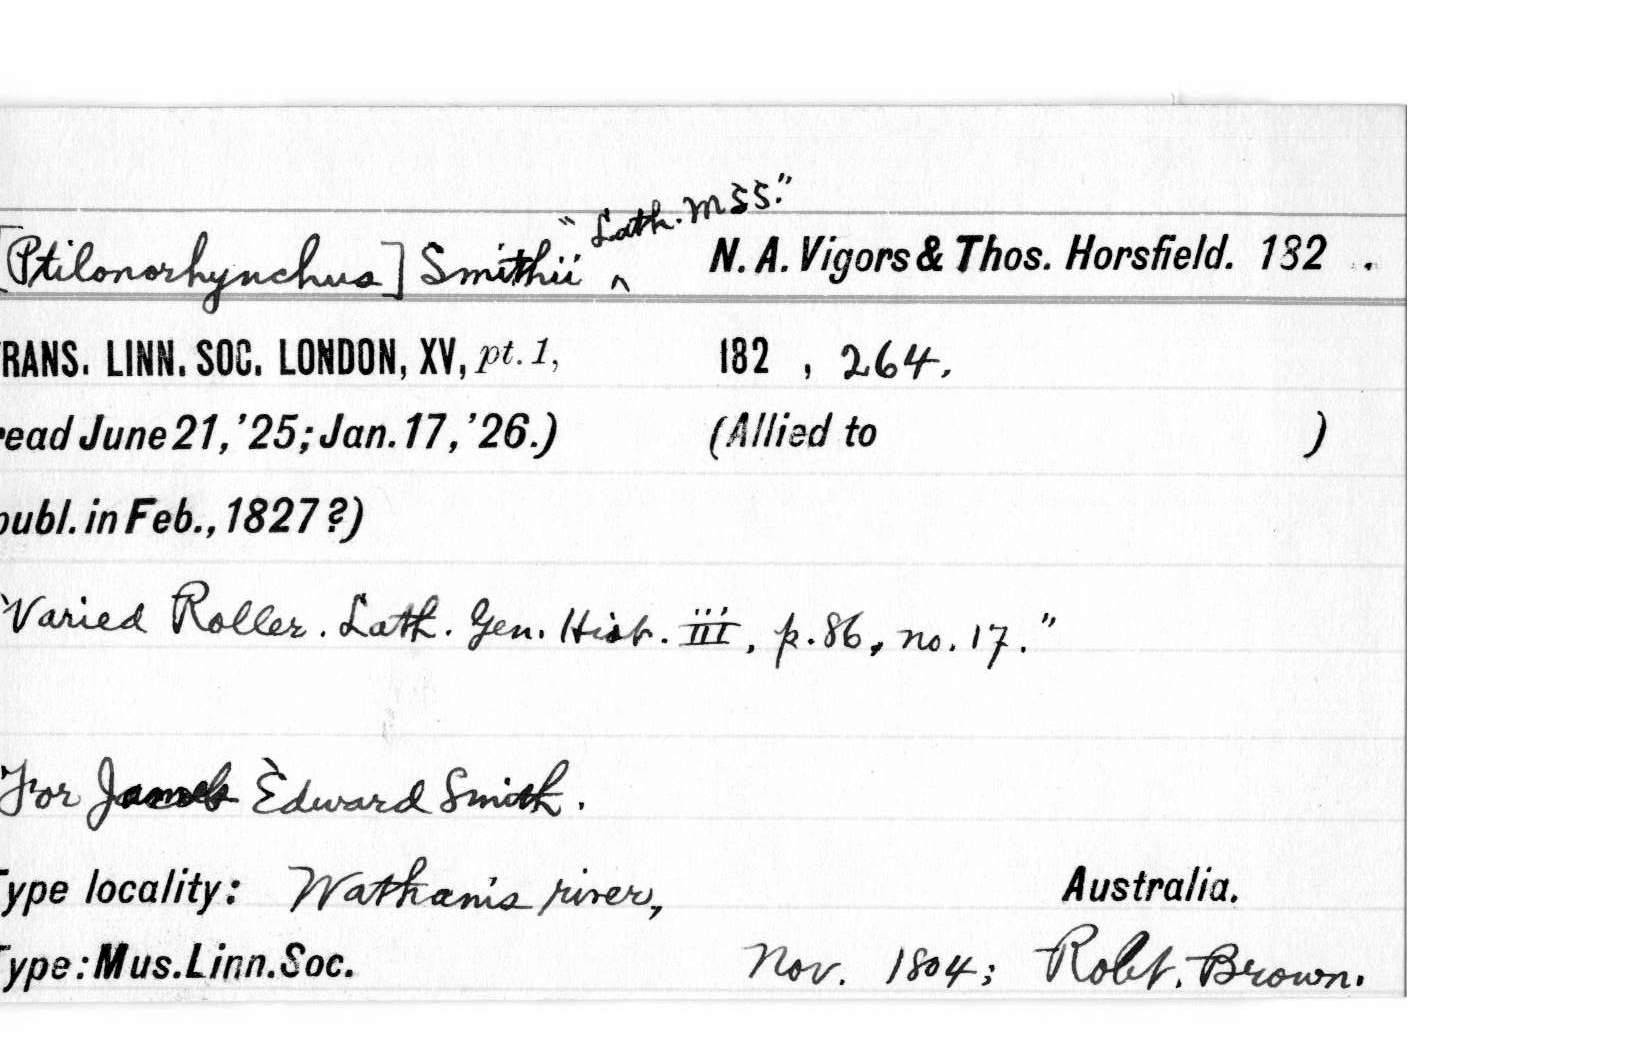 [Ptilonorhynchus] Smithii ^ "Lath. MSS." N. A. Vigors & Thos. Horsfield. 182 .
RANS. LINN. SOC. LONDON, XV, pt. 1, 182 , 264.
read June 21, '25; Jan. 17, '26.) (Allied to )
publ. in Feb., 1827?)
"Varied Roller. Lath. Gen. Hist. III, p. 86, no. 17."
For James Edward Smith.
Type locality: river, Australia.
Type: Mus. Linn. Soc. Nov. 1804; Robt. Brown.